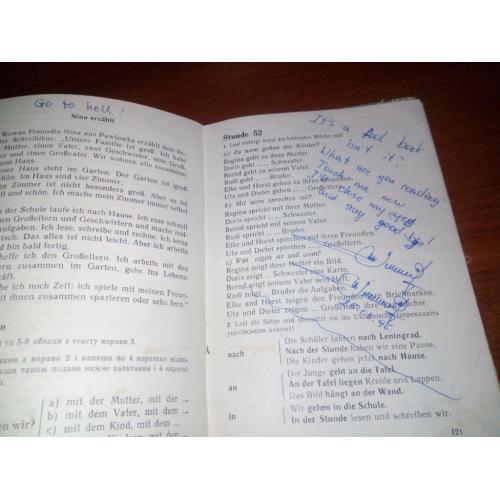 Go to hell!
Nina erzählt
Wowas Freundin Nina aus Pawlowka erzählt dem
der Schreibkus: „Unsere Familie ist groß. Ich habe
Mutter, einen Vater, zwei Geschwister, eine Groß-
und einen Großvater. Wir wohnen alle zusammen
Haus.
Haus steht im Garten. Der Garten ist groß
schön. Im Haus sind vier Zimmer. Ich habe
ein Zimmer ist nicht besonders groß. Aber es ist
und schön. Ich mache mein Zimmer immer selbst
der Schule laufe ich nach Hause. Ich esse schnell
Großeltern und Geschwistern. Dann mache ich
Aufgaben. Ich lese, schreibe und rechne. Ich lerne
tsch. Das alles ist nicht leicht. Aber ich arbeite
und bin bald fertig.
helfe ich den Großeltern. Ich arbeite mit den
tern zusammen im Garten, gehe ins Lebens-
habe ich noch Zeit: ich spiele mit meinen Freun-
mit ihnen zusammen spazieren oder sehe fern."
та 5-й абзаци з тексту вправи 3.
з вправи 2 і напиши по 4 коротких відпо-
пиши також подане нижче запитання і 4 короткі
a) mit der Mutter, mit der ...
b) mit dem Vater, mit dem ...
en wir? c) mit dem Kind, mit dem ...
Stunde 52
It's a
isn't it?
What are you reading?
Touch me now
I close my eyes
and say good bye!
a) Zu wem gehen die Kinder?
Regina geht zu ihrer Mutter.
Doris geht ... Schwester.
Bernd geht zu seinem Vater.
Rudi geht ... Bruder.
Elke und Horst gehen zu ihren Freunden.
Uta und Dieter gehen ... Großeltern.
b) Mit wem sprechen sie?
Regina spricht mit ihrer Mutter.
Doris spricht ... Schwester.
Bernd spricht mit seinem Vater.
Rudi spricht ... Bruder.
Elke und Horst sprechen mit ihren Freunden.
Uta und Dieter sprechen ... Großeltern.
c) Was zeigen sie und wem?
Regina zeigt ihrer Mutter ein Bild.
Doris zeigt ... Schwester eine Karte.
Bernd zeigt seinem Vater sein Heft.
Rudi zeigt ... Bruder die Aufgaben.
Elke und Horst zeigen den Freunden die Briefmarken.
Uta und Dieter zeigen ... Großeltern ihre Wörterbücher.
2. Lest die Sätze und übersetzt sie ins Ukrainische (перекладіть
українською мовою)!
nach
Die Schüler fahren nach Leningrad.
Nach der Stunde haben wir eine Pause.
Die Kinder gehen jetzt nach Hause.
an
Der Junge geht an die Tafel.
An der Tafel liegen Kreide und Lappen.
Das Bild hängt an der Wand.
in
Wir gehen in die Schule.
In der Stunde lesen und schreiben wir.
121